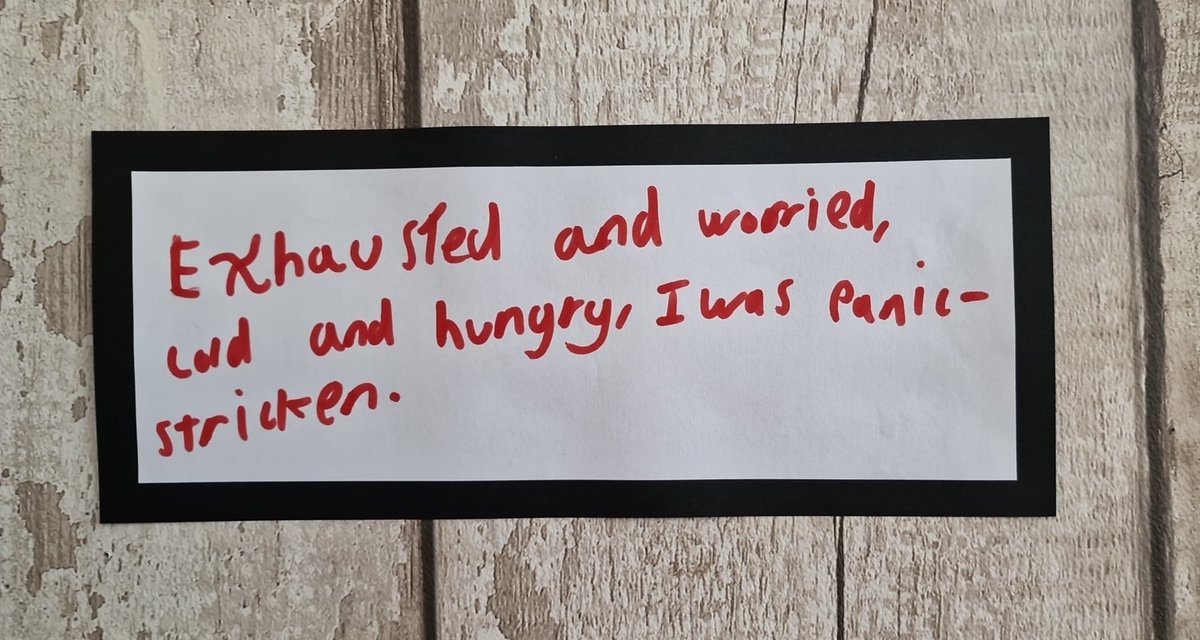 Exhausted and worried,
cold and hungry, I was panic-
stricken.